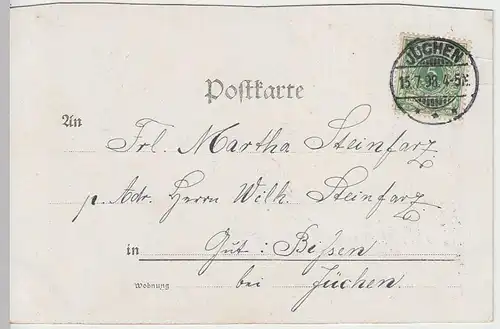 JÜCHEN
15.7.98.4-5N.
Postkarte
An
Frl. Martha Steinfarz
p. Adr. Herrn Wilh. Steinfarz
in Gut: Bissen
Wohnung bei Jüchen.